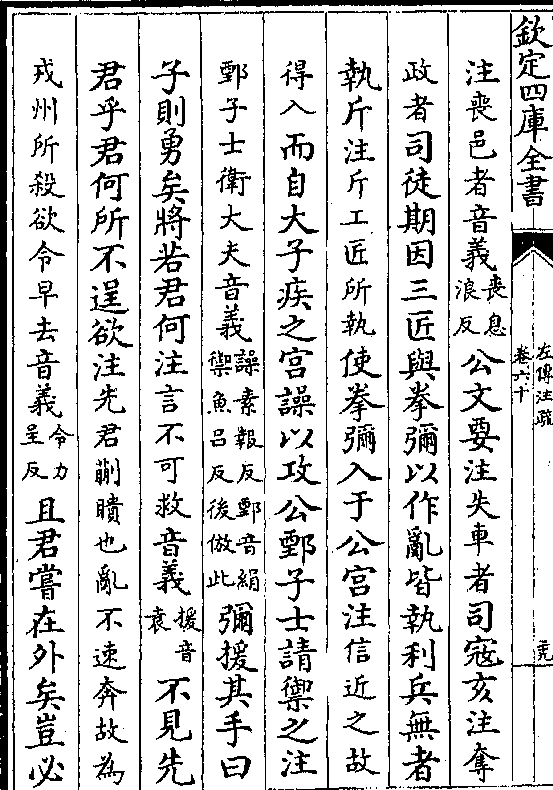 欽定四庫全書
左傳注疏
卷六十
注喪邑者音義喪息浪反公文要注失車者司寇亥注奪
政者司徒期因三匠與拳彌以作亂皆執利兵無者
執斤注斤工匠所執使拳彌入于公宮注信近之故
得入而自大子疾之宮譟以攻公鄄子士請禦之注
鄄子士衛大夫音義譟素報反鄄音絹禦魚呂反後倣此彌援其手曰
子則勇矣將若君何注言不可救音義援音袁不見先
君乎君何所不逞欲注先君蒯聵也亂不速奔故為
戎州所殺欲令早去音義令力呈反且君嘗在外矣豈必